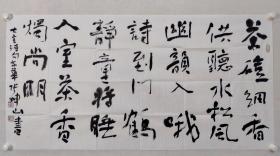 茶磴細香
供聽水松風
幽韻入哦
詩到门鶴
靜童將睡
入室茶香
燭尚明